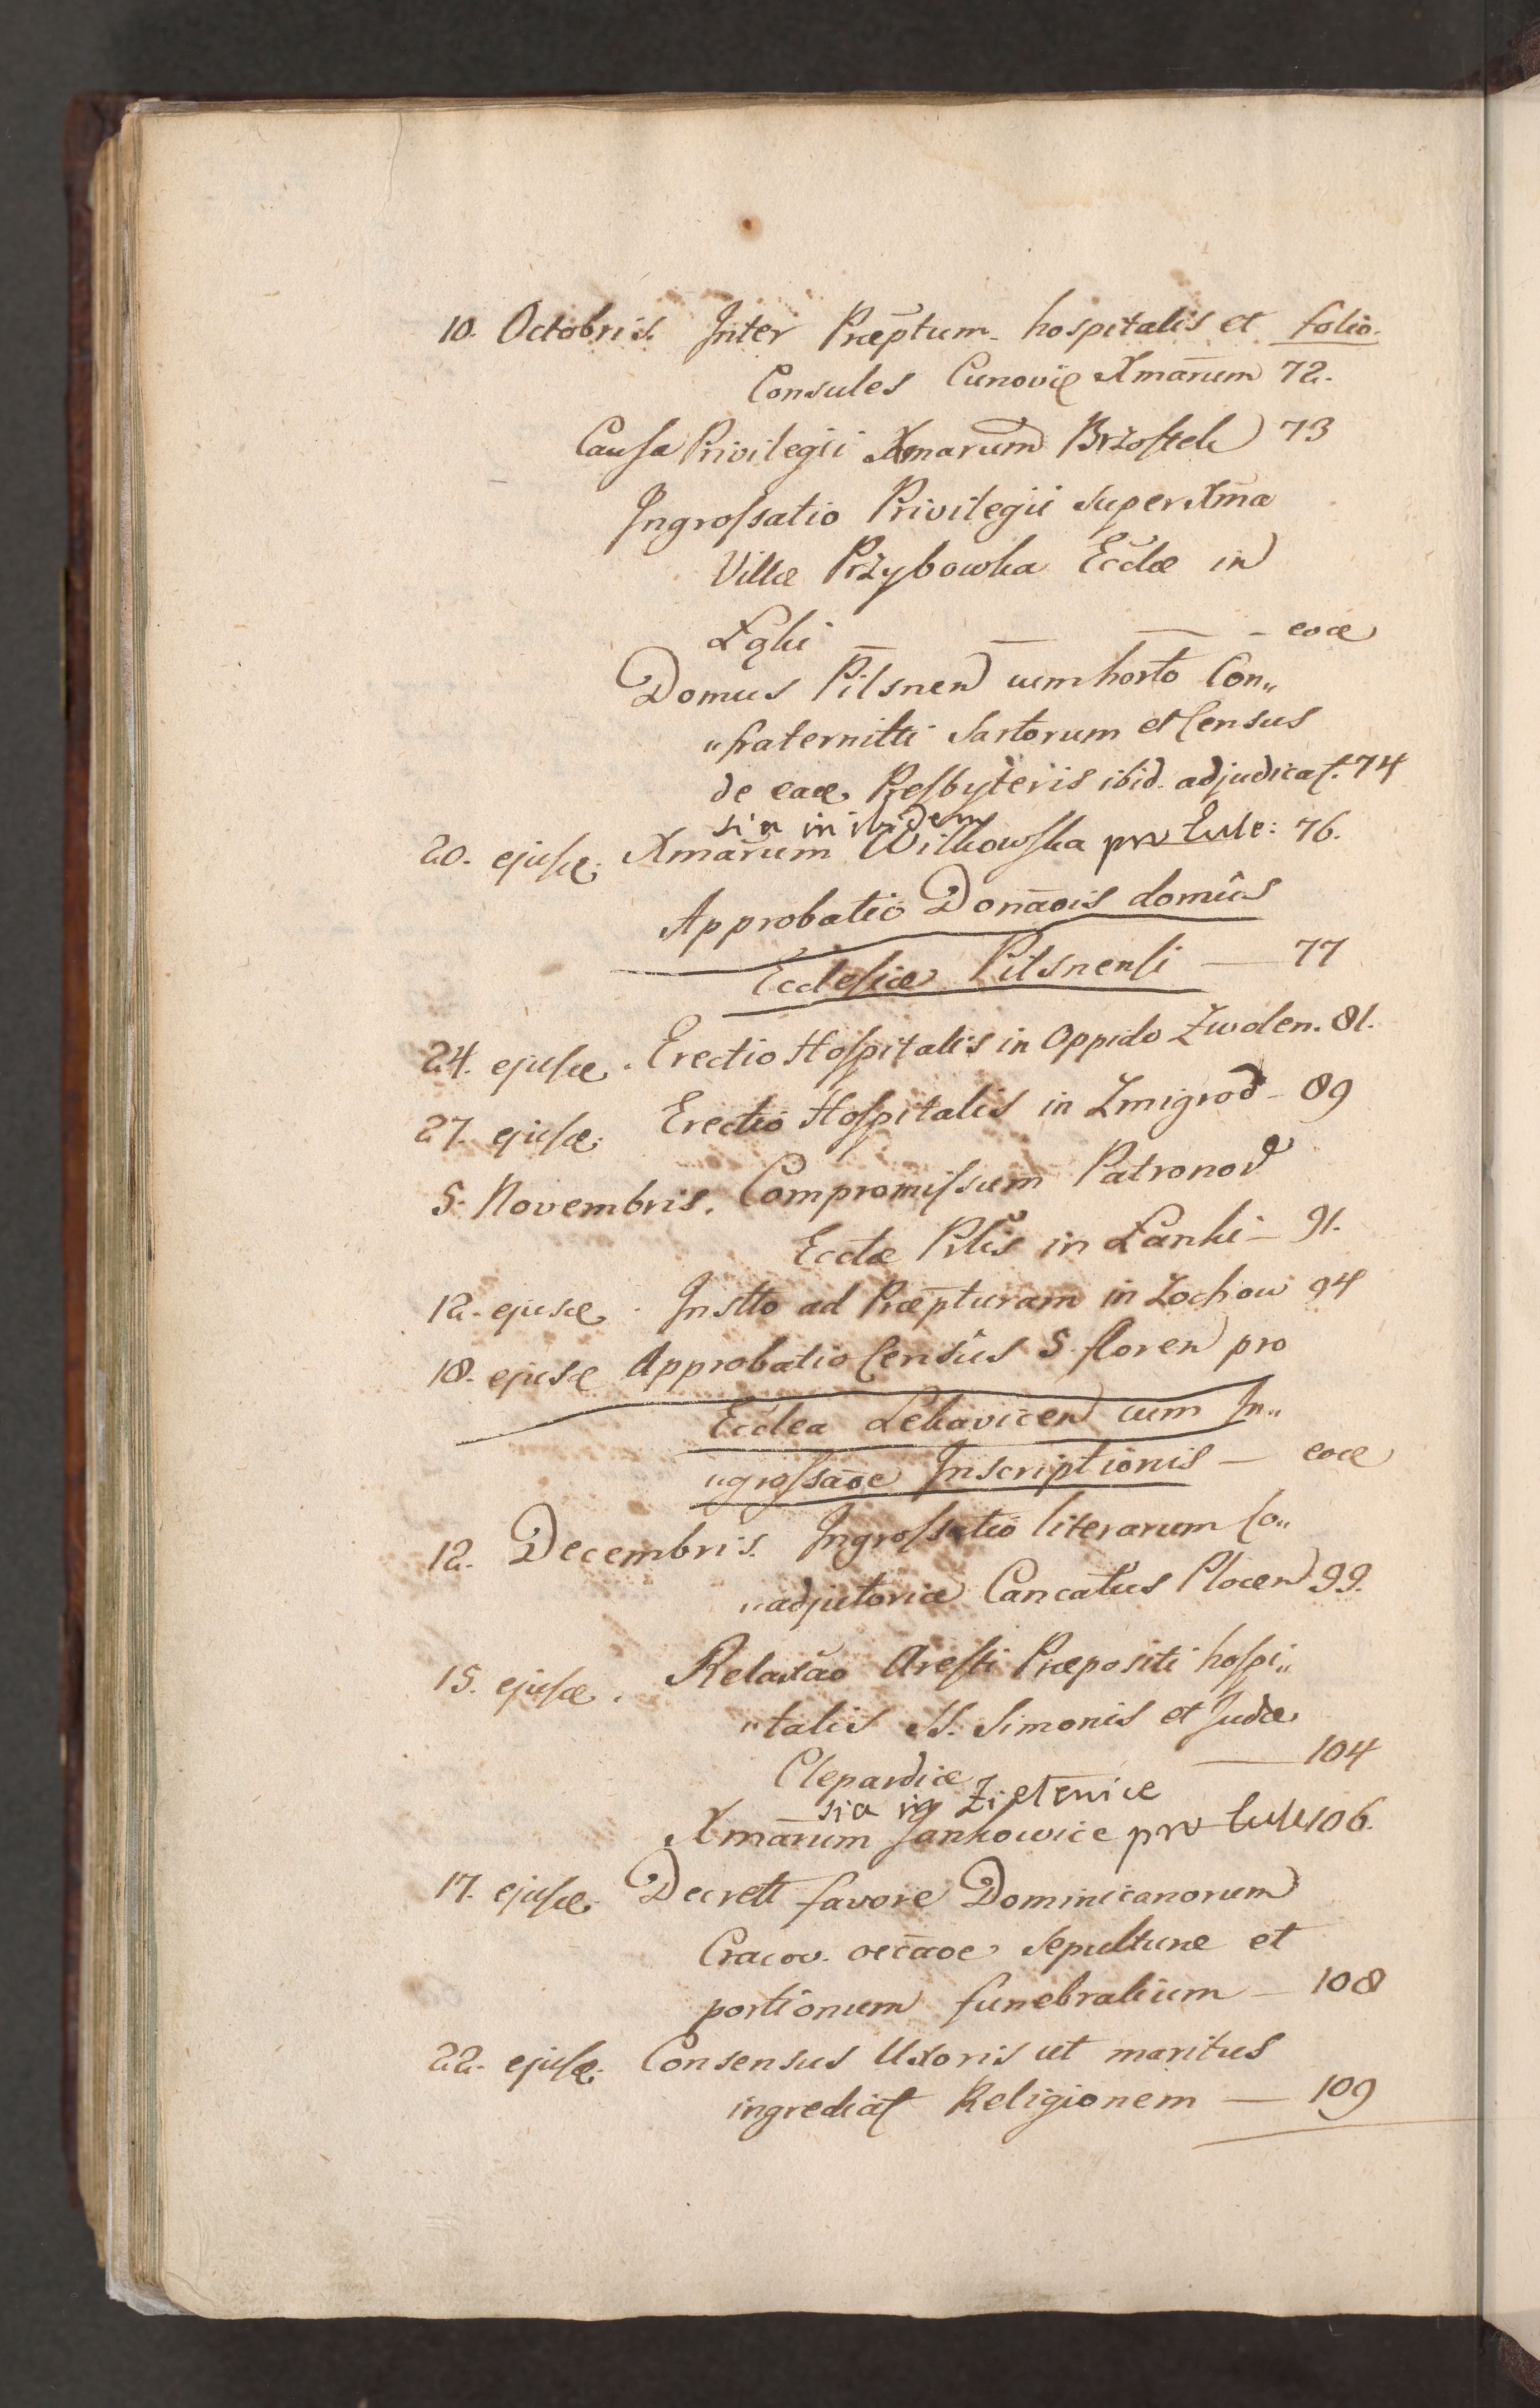 10. Octobris. Inter Præptum hospitalis et folio.
Consules Cunoviæ Xmārum 72.
Causa Privilegii Xmarum Brzostek 73
Ingrossatio Privilegii super Xma
Villæ Przybowka Ecclæ in
Łąki — — - eodē
Domus Pilsnen cum horto Con„
„fraternitti Sartorum et Census
de eadē Presbyteris ibid. adjudicat. 74
sia in ibidem
20. ejusdē. Xmārum Wilkowska pro 76.
Approbatio Donāois domûs
Ecclesiæ Pilsnensi — 77
24. ejusdē. Erectio Hospitalis in Oppido Zwolen. 81.
27. ejusdē. Erectio Hospitalis in Zmigrod - 89
5. Novembris. Compromissum Patronor
Ecclæ Pclis in Łanki - 91.
12. ejusdē. Instto ad Præpturam in Zochow 94
18. ejusdē Approbatio Censûs 5. floren pro
Ecclea Lekavicen cum In„
„grossāoe Inscriptionis — eodē
12. Decembris. Ingrossatio literarum Co„
„adjutoriæ Cancatus Plocen 99.
15. ejusdē. Relaxāo Aresti Præpositi hospi„
„talis SS. Simonis et Judæ
Clepardiæ — 104
sia in
Xmārum Jankowice pro 106.
17. ejusdē. Decrett favore Dominicanorum
Cracov. oecāoe sepulturæ et
portionum funebralium — 108
22. ejusdē. Consensus Uxoris ut maritus
ingrediat Religionem — 109